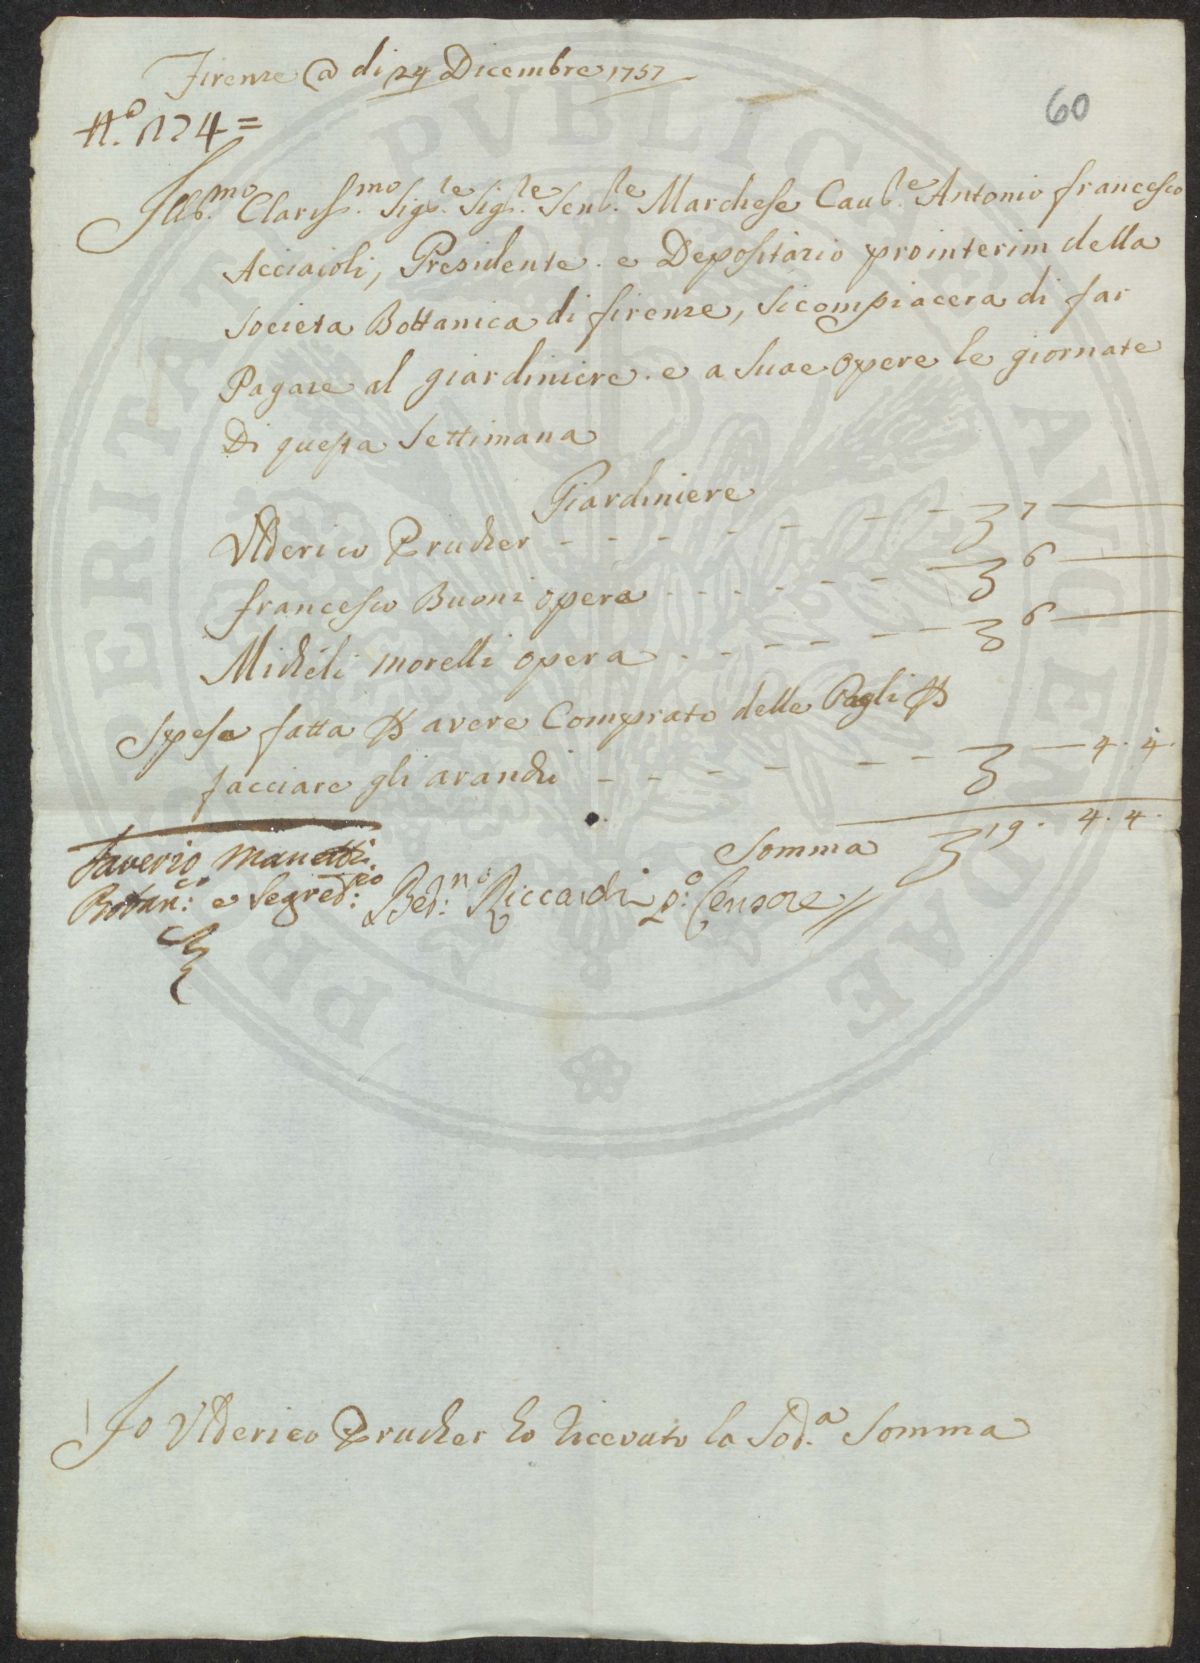 Firenze @ di 24 Dicembre 1757
60
N.º 1274 =
Illb.mo Clariss.mo Sig.le Sig.le Senl.le Marchese Caul.e Antonio francesco
Acciaioli, Presidente. e Depositario prointerim della
Societa Bottanica di firenze, si compiacera di far
Pagare al giardiniere. e a Suae opere le giornate
Di questa Settimana
Giardiniere
Ulderico Prucher - - - - - - - 7 —
francesco Buoni opera - - - - - - 6 —
Micheli morelli opera - - - - - - 6 —
Spesa fatta P avere Comprato delle Pagli P
facciare gli aranchi - - - - - - - — 4. 4.
Somma 19. 4. 4.
Saverio Manetti
Botan.co e Segret.rio Bed.no Riccardi p.º Censore //
Io Ulderico Prucher ho ricevuto la Sod.a Somma
PUBLICAE PROSPERITATI AUGENDAE